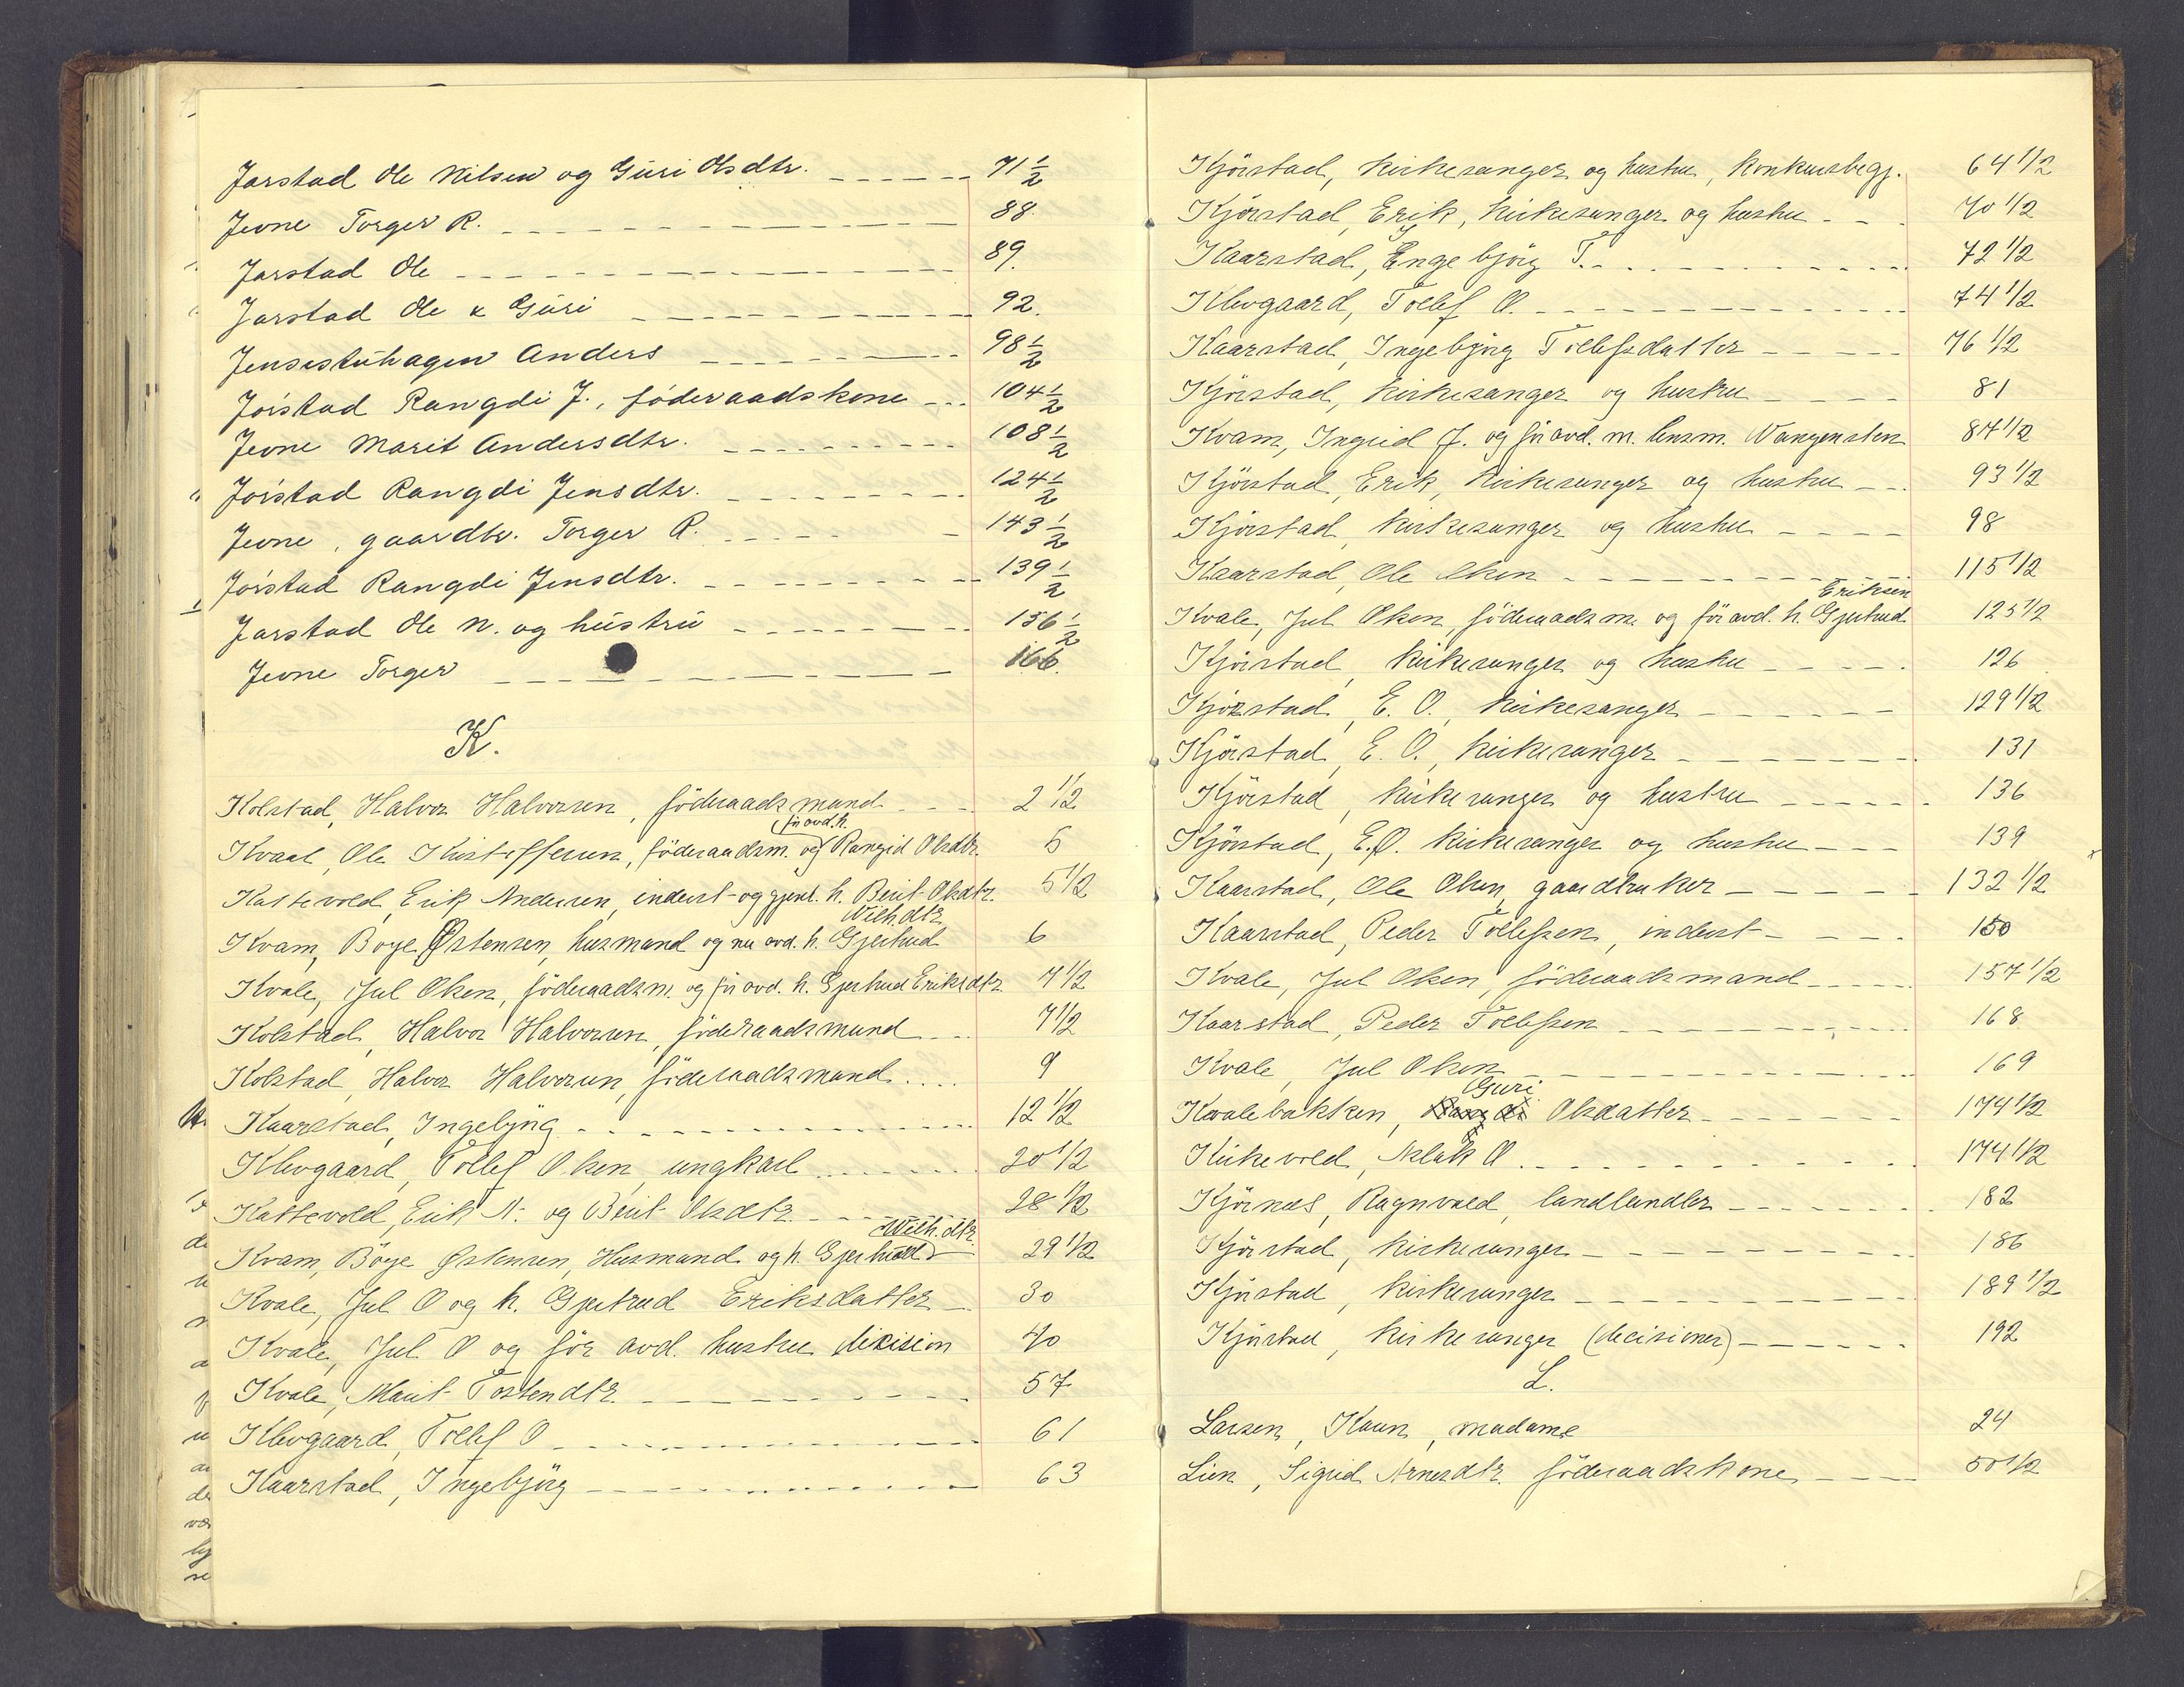 Jarstad Ole Nilsen og Guri Olsdtr. 71 1/2
Jevne Torger R. 88.
Jarstad Ole 89.
Jarstad Ole & Guri 92.
Jensestuhagen Anders 98 1/2
Jörstad Rangdi J., föderaadskone 104 1/2
Jevne Marit Andersdtr. 108 1/2
Jörstad Rangdi Jensdtr. 124 1/2
Jevne, gaardbr. Torger R. 143 1/2
Jörstad Rangdi Jensdtr. 139 1/2
Jarstad Ole N. og hustru 156 1/2
Jevne Torger 166.
K.
Kolstad, Halvor Halvorsen, föderaadsmand 2 1/2
för avd. h.
Kvaal, Ole Kristoffersen, föderaadsm. og Rangid Olsdtr. 5
Kattevold, Erik Andersen, inderst og gjenl. h. Berit Olsdtr. 5 1/2
Wilh.dtr.
Kvam, Boye Østensen, husmand og nu avd. h. Gjertrud 6
Kvale, Jul Olsen, föderaadsm. og för avd. h. Gjertrud Eriksdtr. 7 1/2
Kolstad, Halvor Halvorsen, föderaadsmand 7 1/2
Kolstad, Halvor Halvorsen, föderaadsmand 9
Kaarstad, Ingebjörg 12 1/2
Klevgaard, Tollef Olsen, ungkarl 20 1/2
Kattevold, Erik A. og Berit Olsdtr. 28 1/2
Wilh.dtr.
Kvam, Böye Østensen, Husmand og h. Gjertrud 29 1/2
Kvale, Jul O og h. Gjertrud Eriksdatter 30
Kvale, Jul O og för avd. hustru decision 40
Kvale, Marit Tostendtr. 57
Klevgaard, Tollef O 61
Kaarstad, Ingebjörg 63
Kjörstad, kirkesanger og hustru, konkursbegj. 64 1/2
Kjörstad, Erik, kirkesanger og hustru 70 1/2
Kaarstad, Engebjörg T. 72 1/2
Klevgaard, Tollef O. 74 1/2
Kaarstad, Ingebjörg Tollefsdatter 76 1/2
Kjörstad, kirkesanger og hustru 81
Kvam, Ingrid J. og för avd. m. lensm. Wangensten 84 1/2
Kjörstad, Erik, kirkesanger og hustru 93 1/2
Kjörstad, kirkesanger og hustru 98
Kaarstad, Ole Olsen 115 1/2
Eriksen
Kvale, Jul Olsen, föderaadsm. og för avd. h. Gjertrud 125 1/2
Kjörstad, kirkesanger og hustru 126
Kjörstad, E. O., kirkesanger 129 1/2
Kjörstad, E. O., kirkesanger 131
Kjörstad, kirkesanger og hustru 136
Kjörstad, E.O. kirkesanger og hustru 139
Kaarstad, Ole Olsen, gaardbruker 132 1/2
Kaarstad, Peder Tollefsen, inderst 150
Kvale, Jul Olsen, föderaadsmand 157 1/2
Kaarstad, Peder Tollefsen 168
Kvale, Jul Olsen 169
Guri
Kvalebakken, Rangdi Olsdatter 174 1/2
Kirkevold, Aslak O. 174 1/2
Kjörnæs, Ragnvald, landhandler 182
Kjörstad, kirkesanger 186
Kjörstad, kirkesanger 189 1/2
Kjörstad, kirkesanger (decisioner) 192
L.
Larsen, Karen, madame 24
Lien, Sigrid Arnesdtr. föderaadskone 50 1/2